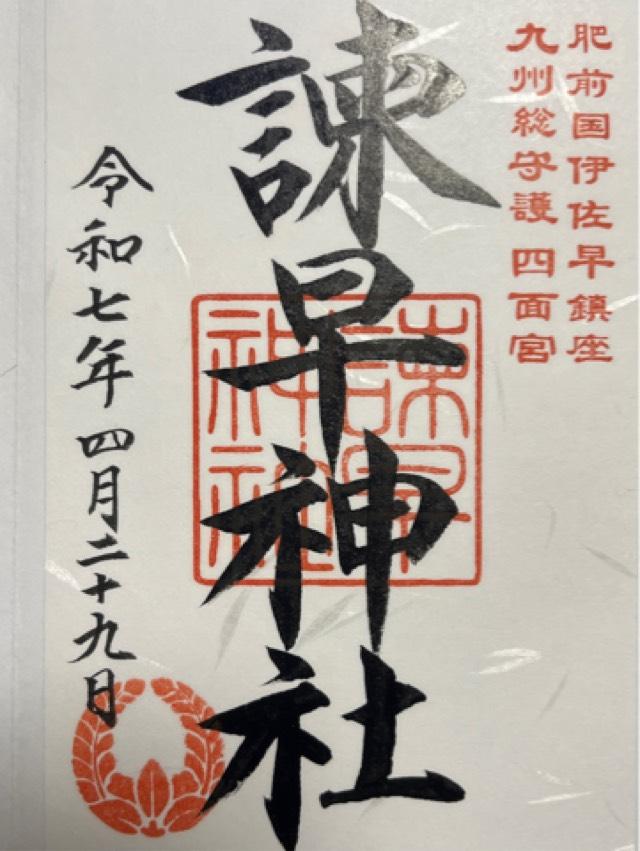 肥前国伊佐早鎮座
九州総守護 四面宮
諫早神社
諫早神社
令和七年四月二十九日